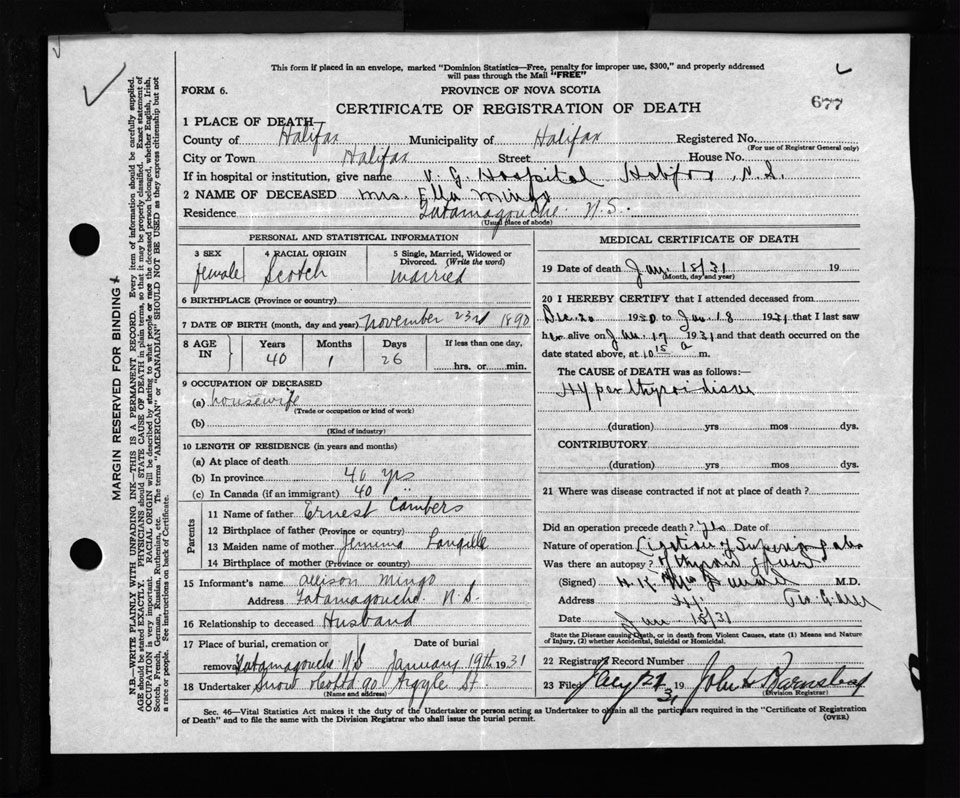 This form if placed in an envelope, marked "Dominion Statistics—Free, penalty for improper use, $300," and properly addressed
will pass through the Mail "FREE"
FORM 6.
PROVINCE OF NOVA SCOTIA
CERTIFICATE OF REGISTRATION OF DEATH
677
1 PLACE OF DEATH—
County of Halifax Municipality of Halifax Registered No.
(For use of Registrar General only)
City or Town Halifax Street House No.
If in hospital or institution, give name V. G. Hospital Halifax N.S.
2 NAME OF DECEASED Mrs. Ella Mingo
Residence Tatamagouche N.S.
(Usual place of abode)
PERSONAL AND STATISTICAL INFORMATION
3 SEX 4 RACIAL ORIGIN 5 Single, Married, Widowed or
Divorced. (Write the word)
female Scotch married
6 BIRTHPLACE (Province or country)
7 DATE OF BIRTH (month, day and year) November 23rd 1890
8 AGE IN Years Months Days If less than one day,
40 1 26 hrs. or min.
9 OCCUPATION OF DECEASED
(a) housewife
(Trade or occupation or kind of work)
(b)
(Kind of industry)
10 LENGTH OF RESIDENCE (in years and months)
(a) At place of death
(b) In province 40 yrs
(c) In Canada (if an immigrant) 40 "
Parents
11 Name of father Ernest Cambers
12 Birthplace of father (Province or country)
13 Maiden name of mother Jemima Langille
14 Birthplace of mother (Province or country)
15 Informant's name Allison Mingo
Address Tatamagouche N.S.
16 Relationship to deceased Husband
17 Place of burial, cremation or Date of burial
removal Tatamagouche N.S January 19th 1931
18 Undertaker Snow & Co Ltd 90 Argyle St.
(Name and address)
MEDICAL CERTIFICATE OF DEATH
19 Date of death Jan. 18/31 19
(Month, day and year)
20 I HEREBY CERTIFY that I attended deceased from
Dec. 20 1930 to Jan. 18 1931 that I last saw
her alive on Jan. 17 1931 and that death occurred on the
date stated above, at 10 15 a m.
The CAUSE of DEATH was as follows:—
Hyperthyroidism
(duration) yrs mos dys.
CONTRIBUTORY
(duration) yrs mos dys.
21 Where was disease contracted if not at place of death?
Did an operation precede death? Yes Date of
Nature of operation Ligation of Superior
Was there an autopsy? of thyroid
(Signed) H. K. M.D.
Address
Date Jan 18/31
State the Disease causing Death, or in death from Violent Causes, state (1) Means and Nature
of Injury, (2) whether Accidental, Suicidal or Homicidal.
22 Registrar's Record Number
23 Filed Jany 21 1931 John H Barnstead
(Division Registrar)
Sec. 46—Vital Statistics Act makes it the duty of the Undertaker or person acting as Undertaker to obtain all the particulars required in the "Certificate of Registration
of Death" and to file the same with the Division Registrar who shall issue the burial permit.
(OVER)
MARGIN RESERVED FOR BINDING
N.B.—WRITE PLAINLY WITH UNFADING INK—THIS IS A PERMANENT RECORD. Every item of information should be carefully supplied.
AGE should be stated EXACTLY. PHYSICIANS should STATE CAUSE OF DEATH in plain terms, so that it may be properly classified. Exact statement of
OCCUPATION is very important. RACIAL ORIGIN will be described by stating to what people or race the deceased person belonged, whether English, Irish,
Scotch, French, German, Russian, Ruthenian, etc. The terms "AMERICAN" or "CANADIAN" SHOULD NOT BE USED as they express citizenship but not
a race or people. See instructions on back of Certificate.